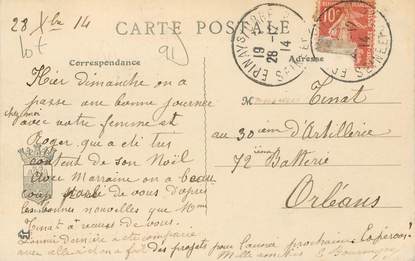 28 Xbre 14
CARTE POSTALE
Correspondance
Adresse
EPINAY-S
SEINE-ET
19
28 -
14
10
Hier Dimanche on a
passé une bonne journée
chez moi
avec votre femme et
Roger qui a été très
content de son Noël
Avec Marraine on a beau
coup parlé de vous D'après
les bonnes nouvelles que Mme
Tenat a reçues de vous.
L'année dernière a été
avec elle on a fait des projets pour l'année prochaine Espérons!
Mille amitiés
M
Tenat
au 30ième d'Artillerie
72ième Batterie
Orléans